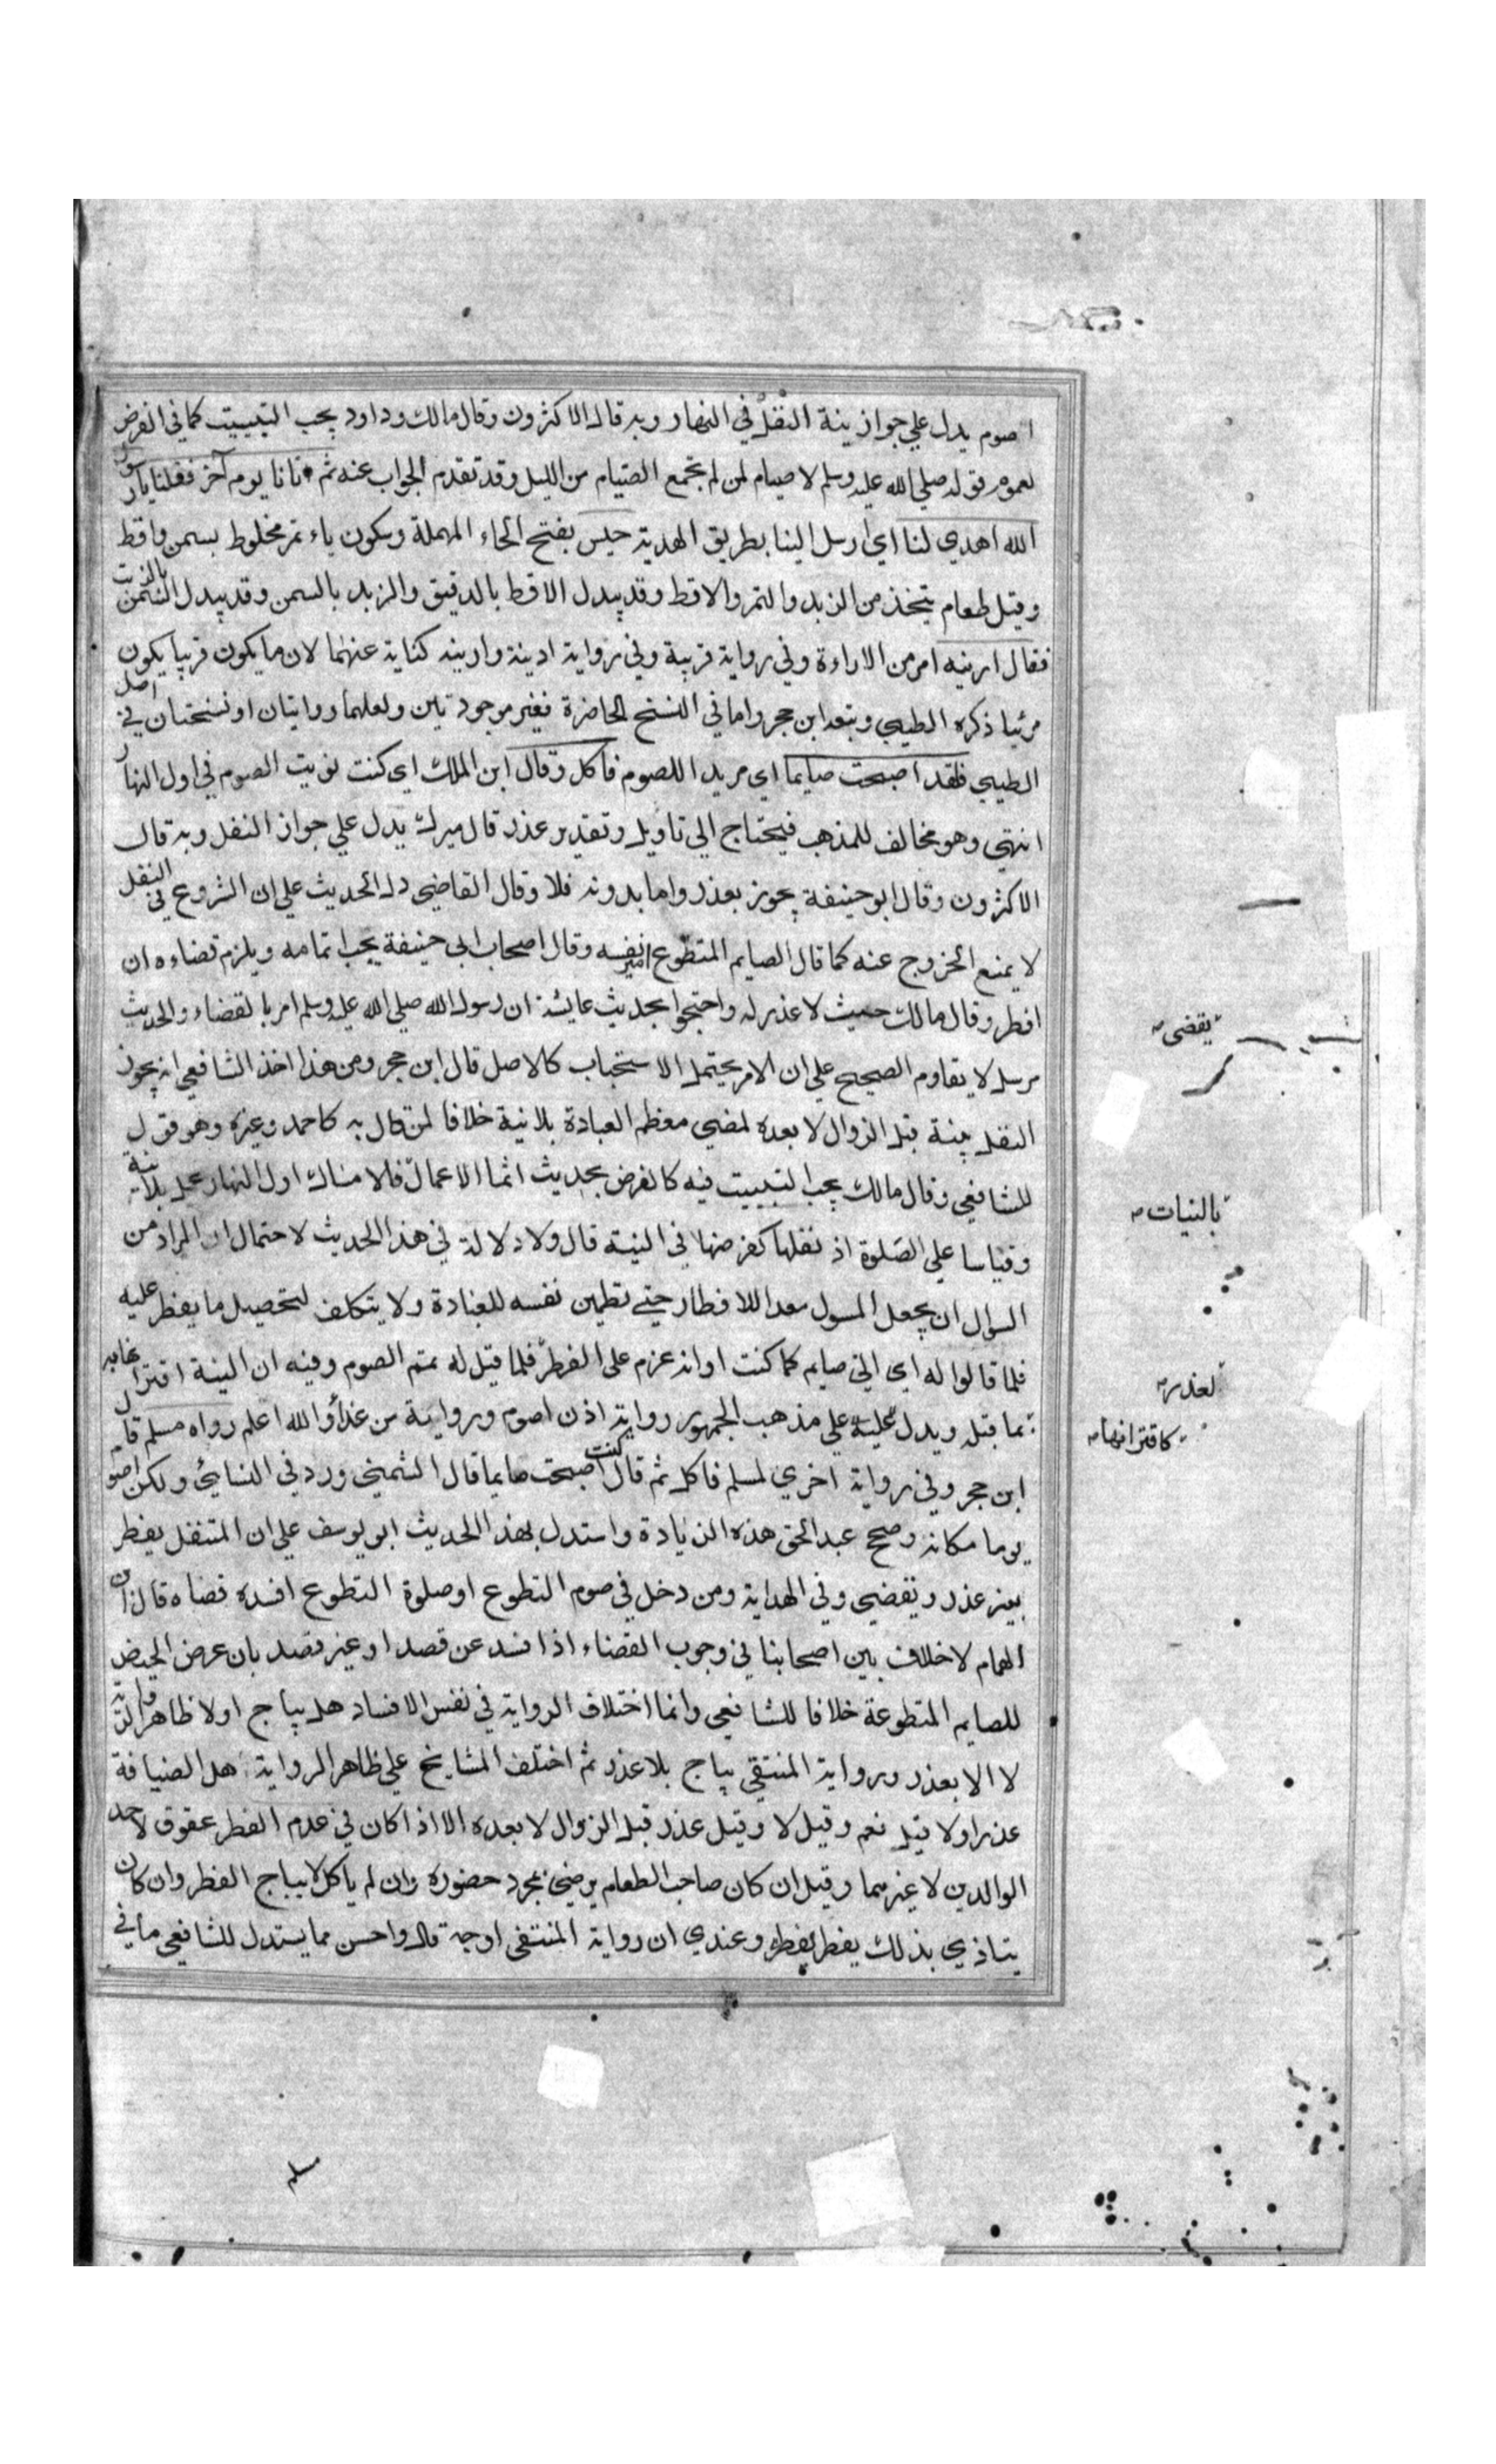 اصوم يدل علي جواز نية النفل في النهار وبه قال الاكثرون وقال مالك وداود يجب التبييت كما في الفرض
لعموم قوله صلي الله عليه وسلم لا صيام لمن لم يجمع الصيام من الليل وقد تقدم الجواب عنه ثم اتانا يوم آخر فقلنا يا رسول
الله اهدي لنا اي ارسل الينا بطريق الهدية حيس بفتح الحاء المهملة وسكون ياء تمر مخلوط بسمن واقط
وقيل طعام يتخذ من الزبد والتمر والاقط وقد يبدل الاقط بالدقيق والزبد بالسمن وقد يبدل السمن بالزيت
فقال ارينيه امر من الاراءة وفي رواية قربيه وفي رواية ادنيه وارينيه كناية عنهما لان ما يكون قريبا يكون
مرئيا ذكره الطيبي وتبعه ابن حجر واما في النسخ الحاضرة فغير موجودتين ولعلهما روايتان او نسختان في اصل
الطيبي فلقد اصبحت صايما اي مريدا للصوم فاكل وقال ابن الملك اي كنت نويت الصوم في اول النهار
انتهي وهو مخالف للمذهب فيحتاج الي تاويل وتقدير عذر قال ميرك يدل علي جواز النفل وبه قال
الاكثرون وقال ابو حنيفة يجوز بعذر واما بدونه فلا وقال القاضي دل الحديث علي ان الشروع في النفل
لا يمنع الخروج عنه كما قال الصايم المتطوع امير نفسه وقال اصحاب ابي حنيفة يجب اتمامه ويلزم قضاءه ان
افطر وقال مالك حيث لا عذر له واحتجوا بحديث عايشة ان رسول الله صلي الله عليه وسلم امر بالقضاء والحديث
مرسل لا يقاوم الصحيح علي ان الامر يحتمل الاستحباب كالاصل قال ابن حجر ومن هذا اخذ الشافعي انه يجوز
النفل بنية قبل الزوال لا بعده لمضي معظم العبادة بلا نية خلافا لمن قال به كاحمد وغيره وهو قول
للشافعي وقال مالك يجب التبييت فيه كالفرض بحديث انما الاعمال فالامساك اول النهار عمل بلا نية
وقياسا علي الصلوة اذ نفلها كفرضها في النية قال ولا دلالة في هذا الحديث لاحتمال ان المراد من
السوال ان يجعل المسول معدا للافطار حتي تطمين نفسه للعبادة ولا يتكلف لتحصيل ما يفطر عليه
فلما قالوا له اي اني صايم كما كنت او انه عزم على الفطر فلما قيل له تمم الصوم وفيه ان النية اقترانها به
بما قبله ويدل عليه علي مذهب الجمهور رواية اذن اصوم ورواية من غداء والله اعلم رواه مسلم قال
ابن حجر وفي رواية اخري لمسلم فاكل ثم قال كنت اصبحت صايما قال الشمني ورد في النسائي ولكن اصوم
يوما مكانه وصحح عبد الحق هذه الزيادة واستدل بهذا الحديث ابو يوسف علي ان المتنفل يفطر
بغير عذر ويقضي وفي الهداية ومن دخل في صوم التطوع او صلوة التطوع افسده قضاه قال ابن
الهمام لا خلاف بين اصحابنا في وجوب القضاء اذا فسد عن قصد او غير قصد بان عرض الحيض
للصايم المتطوعة خلافا للشافعي وانما اختلاف الرواية في نفس الافساد هل يباح اولا ظاهر الرواية
لا الا بعذر ورواية المنتقي يباح بلا عذر ثم اختلف المشايخ علي ظاهر الرواية هل الضيافة
عذر اولا قيل نعم وقيل لا وقيل عذر قبل الزوال لا بعده الا اذا كان في عدم الفطر عقوق لاحد
الوالدين لا غيرهما وقيل ان كان صاحب الطعام يرضي بمجرد حضوره وان لم ياكل لا يباح الفطر وان كان
يتاذي بذلك يفطر يفطره وعندي ان رواية المنتقى اوجه قال واحسن مما يستدل للشافعي ما في
يقضى
بالنيات
لعذر
كاقترانها
مسلم